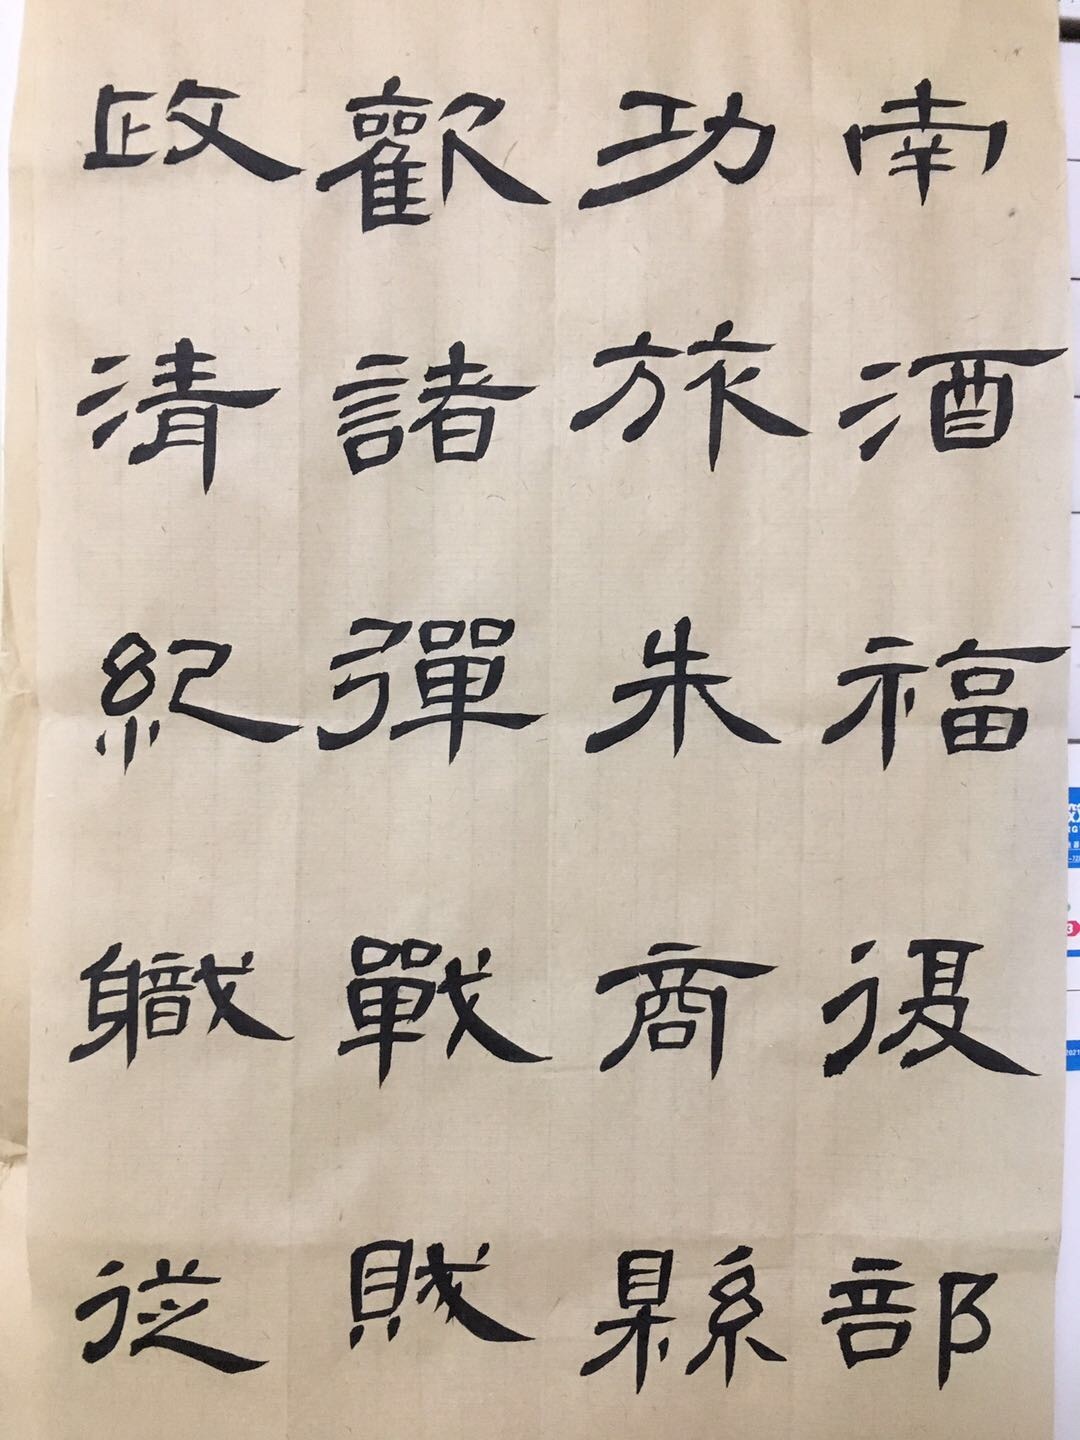 南酒福復部
功旅朱商縣
歡諸彈戰賊
政清紀職從